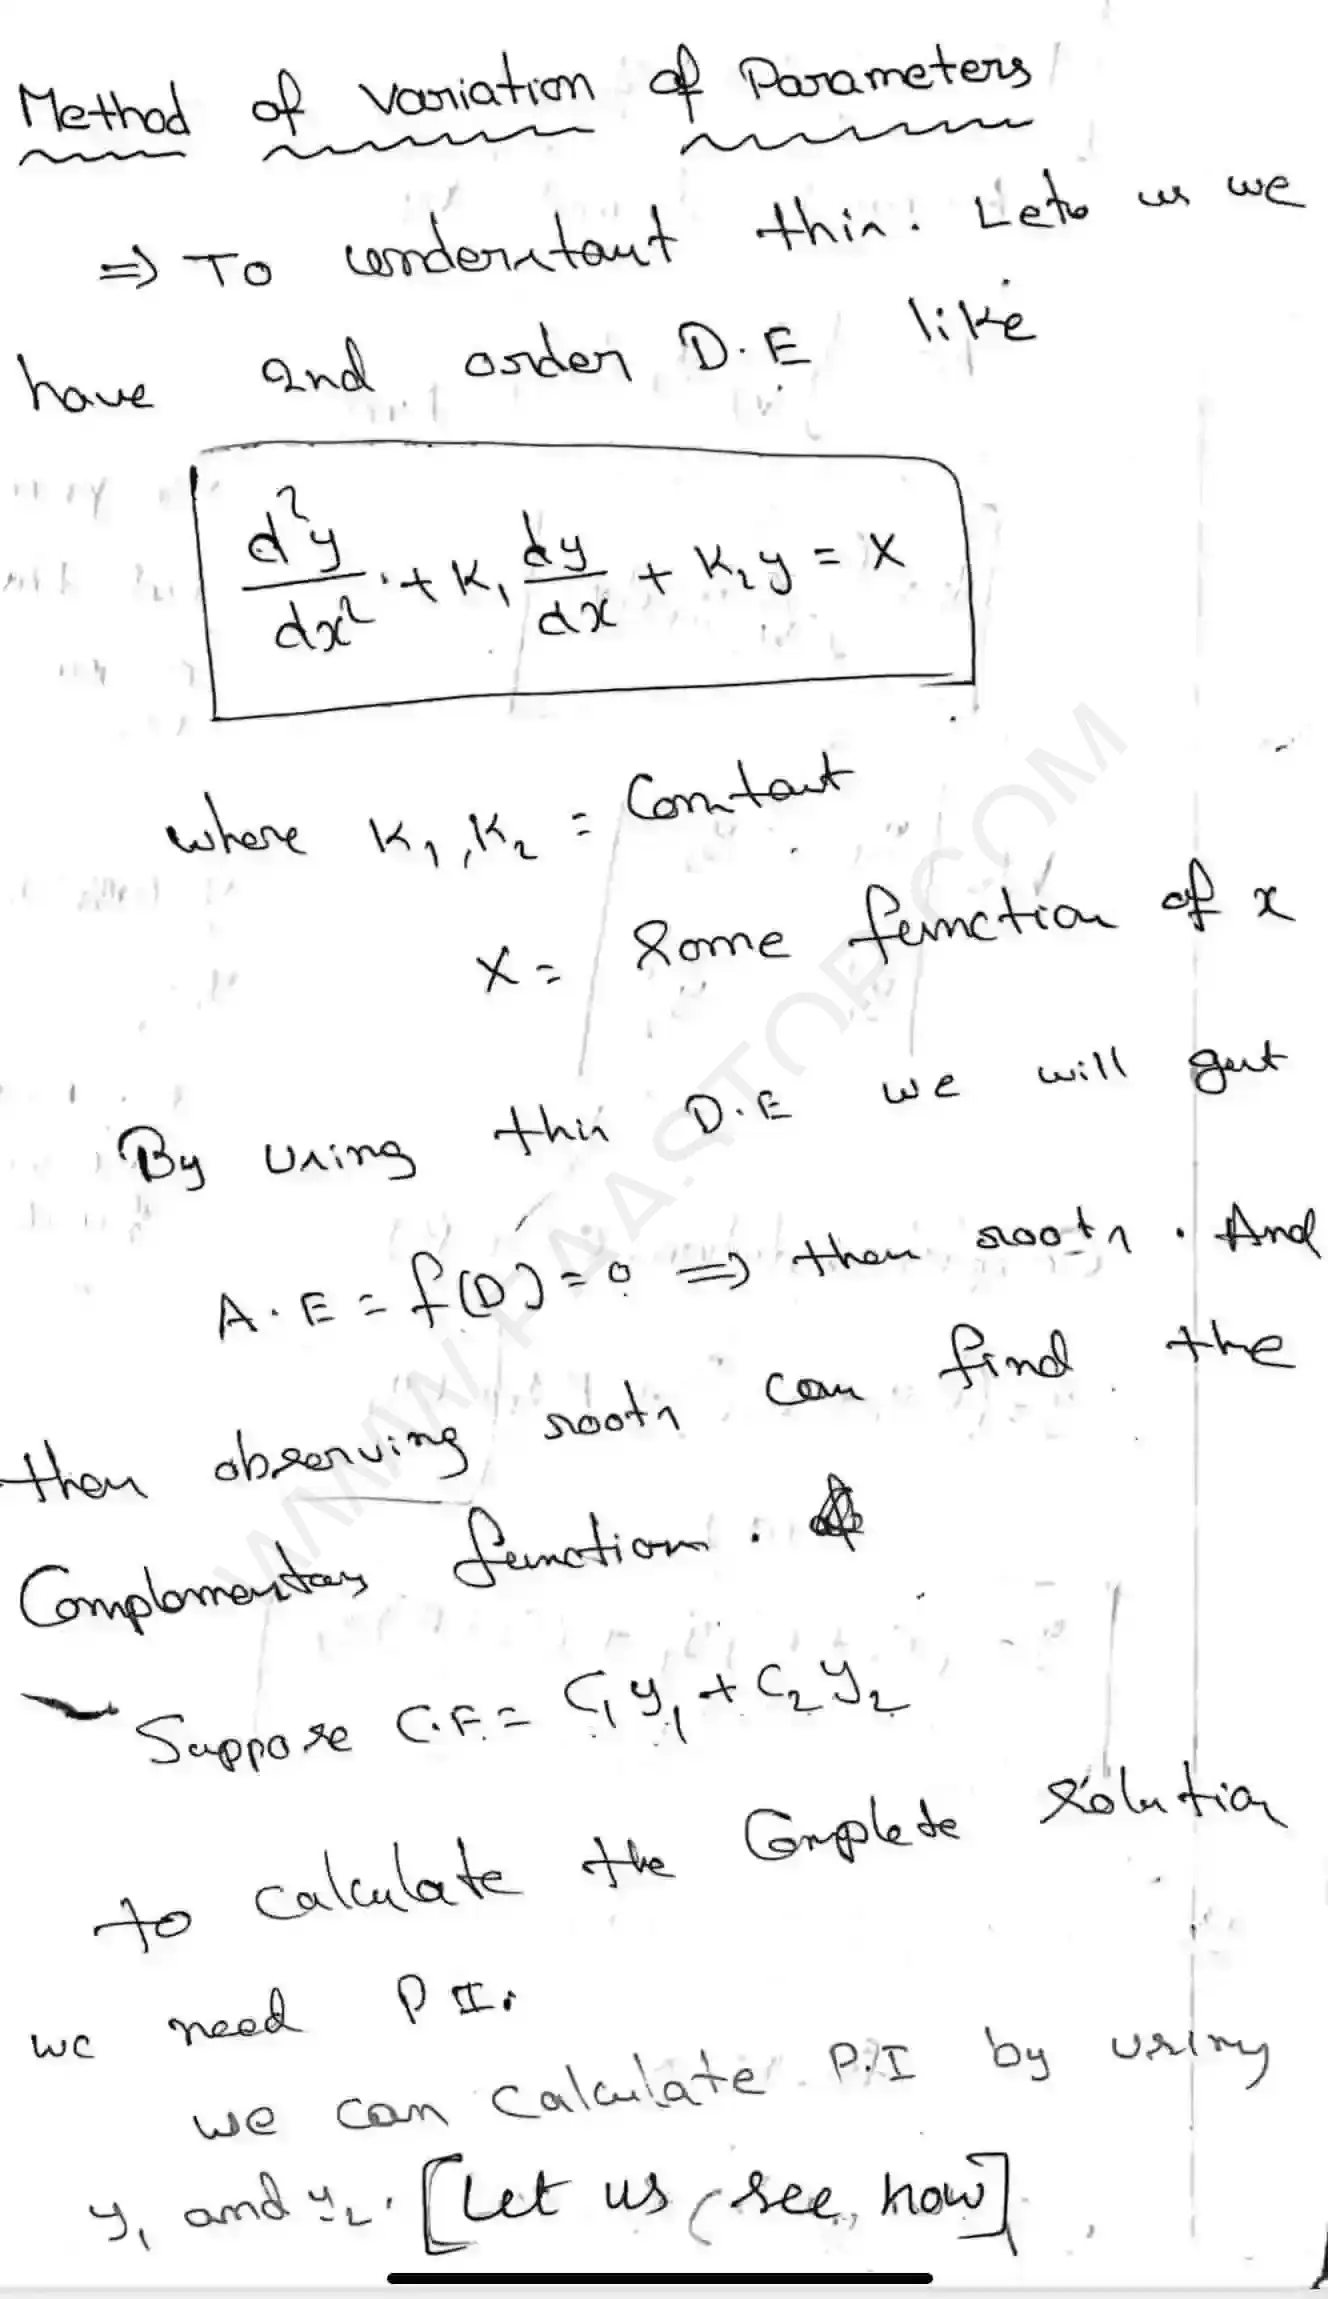 Method of Variation of Parameters
=> To understant this. Lets us we
have 2nd order D.E like
d²y/dx² + K₁ dy/dx + K₂y = X
where K₁, K₂ = Constant
X = Some function of x
By using this D.E we will get
A.E = f(D) = 0 => then roots. And
then observing roots can find the
Complementary function.
Suppose C.F. = C₁y₁ + C₂y₂
to calculate the Complete Solution
we need P I.
we can calculate P.I by using
y₁ and y₂. [Let us see, how]
WWW.FAASTOP.COM